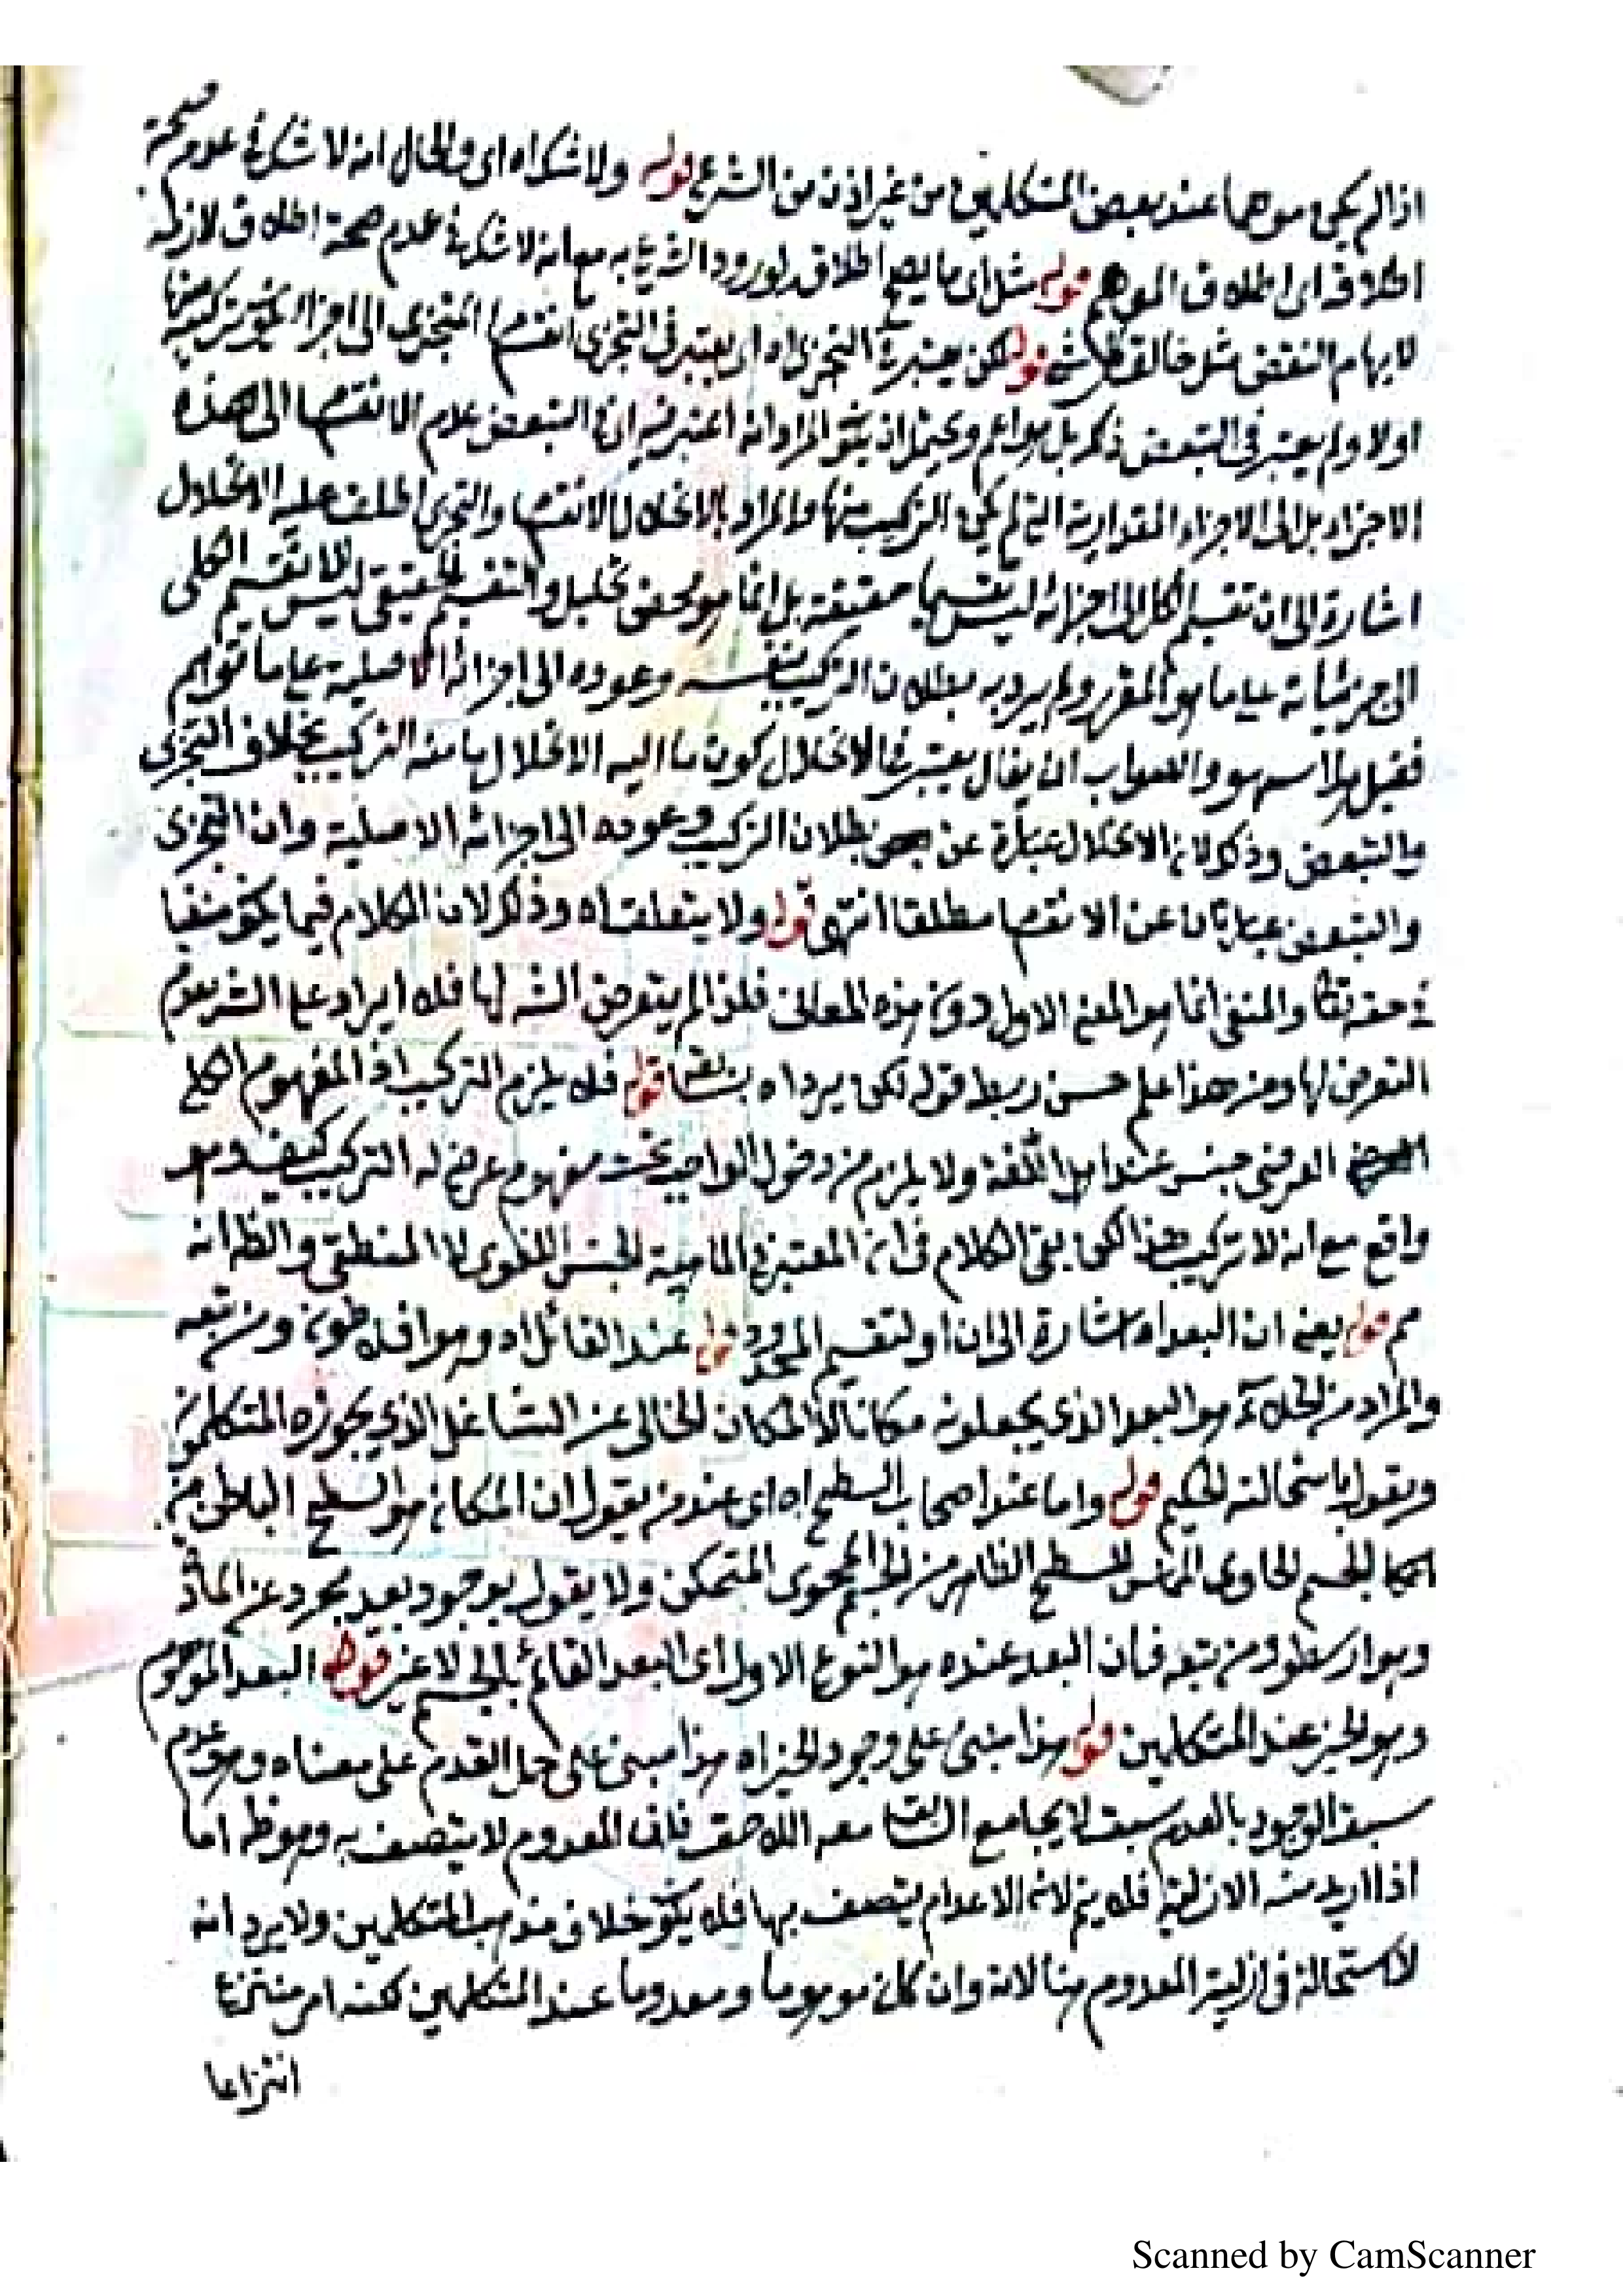 اذا لم يكن موهما عند بعض المتكلمين من غير اذن من الشرع قوله ولا شك اه اى والحال انه لا شك فى عدم صحة
اطلاقه اى اطلاق الموهم قوله مثل اى ما يصح اطلاقه لورود الشرع به مع انه لا شك فى عدم صحة اطلاق لازمه
لايهام النقص مثل خالق كل شئ قوله لكن يعتبر فى التجزى اه اى يعتبر فى التجزى انقسام المتجزى الى اجزاء تركيبه منها
اولا ولم يعتبر فى التبعض ذلك بل هو اعم ويحتمل ان يكون المراد انه اعتبر فيه اى فى التبعض عدم الانقسام الى هذه
الاجزاء بل الى الاجزاء المقدارية التى لم يكن التركيب منها والمراد بالانحلال الانقسام والتجزى اطلق عليه الانحلال
اشارة الى ان تقسيم الكل الى اجزائه ليس تقسيما حقيقة بل انما هو محض تحليل والتقسيم الحقيقى ليس الا تقسيم الكلى
الى جزئياته على ما هو المقرر ولم يرد به بطلان التركيب بنفسه وعوده الى اجزائه الاصلية على ما توهم
فقيل هذا سهو والصواب ان يقال يعتبر فى الانحلال كون ما اليه الانحلال ما منه التركيب بخلاف التجزى
والتبعض وذلك لان الانحلال عبارة عن بطلان التركيب وعوده الى اجزائه الاصلية وان التجزى
والتبعض عبارتان عن الانقسام مطلقا انتهى قوله ولا يتعلق اه وذلك لان الكلام فيما يكون منفيا
فى حقه تعالى والمنفى انما هو المعنى الاول دون هذه المعانى فلذا لم يتعرض الشارح لها فلا ايراد على الشارح بعدم
التعرض لها ومن هذا علم حسن ربط قوله لكن يرد اه بسابقه قوله فلا يلزم التركيب اذ المفهوم الكلى
العرضى جنس عند اهل اللغة ولا يلزم من دخول الواجب تحت مفهوم عرضى له التركيب كيف وهو
واقع مع انه لا تركيب هذا لكن بقى الكلام فى ان المعتبر فى الماهية الجنس اللغوى لا المنطقى والظ انه
مم قوله يعنى ان البعد اه اشارة الى ان او لتقسيم المحدود قوله عند القائل اه وهو افلاطون ومن تبعه
والمراد من الخلاء هو البعد الذى يجعلونه مكانا لا المكان الخالى عن الشاغل الذى يجوزه المتكلمون
ويقول باستحالته الحكيم قوله واما عند اصحاب السطح اه اى عند من يقول ان المكان هو السطح الباطن من
الجسم الحاوى المماس للسطح الظاهر من الجسم المحوى المتمكن ولا يقول بوجود بعد مجرد عن المادة
وهو ارسطو ومن تبعه فان البعد عنده هو النوع الاول اى البعد القائم بالجسم لا غير قوله البعد الموهوم
وهو الحيز عند المتكلمين قوله هذا مبنى على وجود الحيز اه هذا مبنى على حمل القدم على معناه وهو عدم
سبق الوجود بالعدم سبقا لا يجامع السابق معه اللاحق فان المعدوم لا يتصف به وهو ظ اما
اذا اريد منه الازلية فلا يتم لان الاعدام يتصف بها فلا يكون خلاف مذهب المتكلمين ولا يرد انه
لا استحالة فى ازلية المعدوم هنا لانه وان كان موهوما ومعدوما عند المتكلمين لكنه امر منتزع
انتزاعا
Scanned by CamScanner